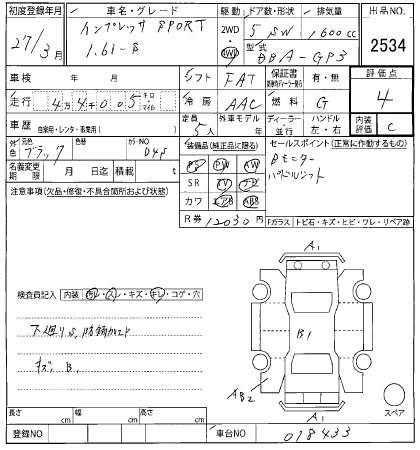 初度登録年月 車名・グレード 駆動 ドア数・形状 排気量 出品NO.
27/3月 インプレッサ SPORT 2WD 4WD 5 SW 1600cc 2534
1.6i-S 型式 DBA-GP3
車検 年 月 シフト FAT 保証書 有・無 評価点
走行 4万4千005 キロ マイル 冷房 AAC 燃料 G 4
車歴 自家用・レンタ・事業用( ) 定員 5人 外車モデル 年 ディーラー 並行 ハンドル 左・右 内装評価 C
外色 元色 ブラック 色替 カラーNO D4S 装備品(純正品に限る) セールスポイント(正常に作動するもの)
名義変更期限 月 日迄 積載 t PS PW AW Dモニター
注意事項(欠品・修復・不具合箇所および状態) SR TV ナビ パドルシフト
カワ エアB ABS
R券 12030円 Fガラス トビ石・キズ・ヒビ・ワレ・リペア跡
A1
検査員記入 内装 ヨゴレ・スレ・キズ・キレ・コゲ・穴
B1
下廻りS,防錆加工P
キズ B,
AB2
A1
スペア
長さ cm 幅 cm 高さ cm
登録NO 車台NO 018433